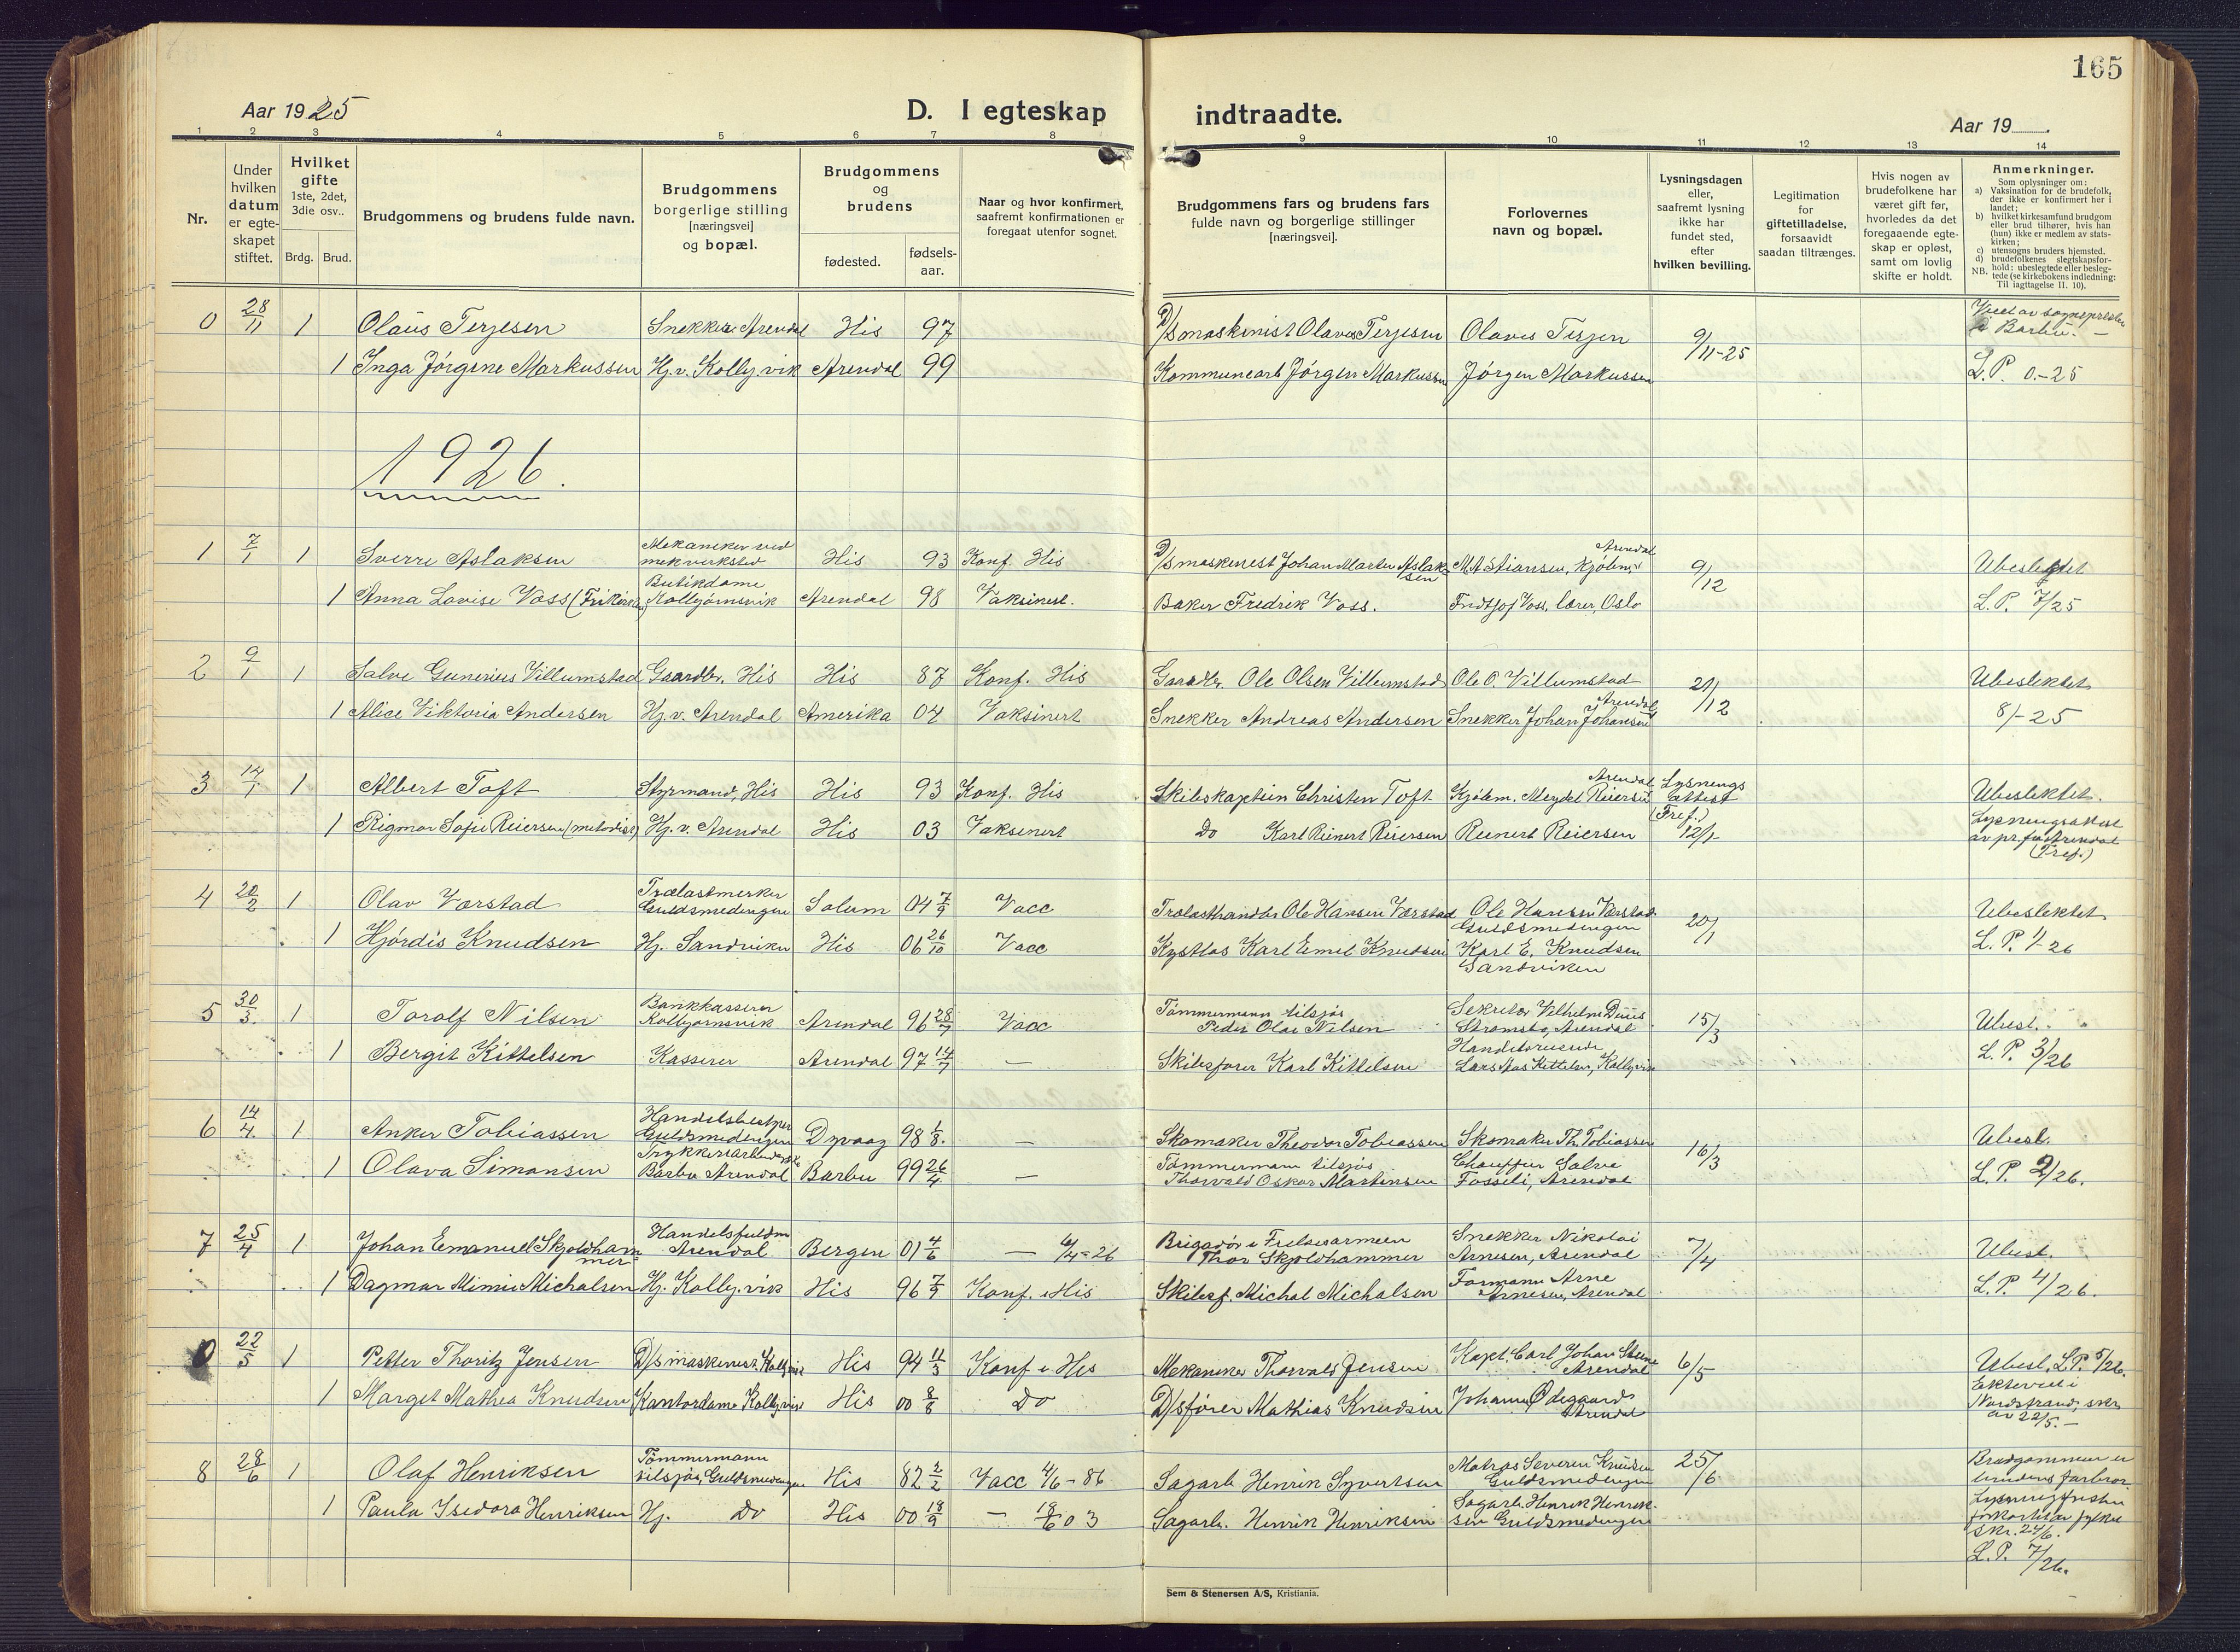 165
Aar 1925
D. I egteskap indtraadte.
Aar 19
1 2 3 4 5 6 7 8 9 10 11 12 13 14
Nr.
Under hvilken datum er egte-skapet stiftet.
Hvilket gifte 1ste, 2det, 3die osv..
Brdg. Brud.
Brudgommens og brudens fulde navn.
Brudgommens borgerlige stilling [næringsvei] og bopæl.
Brudgommens og brudens
fødested.
fødsels-aar.
Naar og hvor konfirmert, saafremt konfirmationen er foregaat utenfor sognet.
Brudgommens fars og brudens fars fulde navn og borgerlige stillinger [næringsvei].
Forlovernes navn og bopæl.
Lysningsdagen eller, saafremt lysning ikke har fundet sted, efter hvilken bevilling.
Legitimation for giftetilladelse, forsaavidt saadan tiltrænges.
Hvis nogen av brudefolkene har været gift før, hvorledes da det foregaaende egte-skap er opløst, samt om lovlig skifte er holdt.
Anmerkninger.
Som oplysninger om:
a) Vaksination for de brudefolk, der ikke er konfirmert her i landet;
b) hvilket kirkesamfund brudgom eller brud tilhører, hvis han (hun) ikke er medlem av stats-kirken;
c) utensogns bruders hjemsted.
d) brudefolkenes slegtskapsfor-hold: ubeslegtede eller besleg-tede (se kirkebokens indledning: Til iagttagelse II. 10).
NB.
0 28/11 1 Olaus Terjesen Snekker Arendal His 97 D/s maskinist Olaves Terjesen Olaves Terjen 9/11-25 Viet av sognepresten i Barbu. –
1 Inga Jórgine Markussen Hj.v. Kolbj.vik Arendal 99 Kommunearb Jórgen Markussen Jórgen Markussen L.P. 0.-25
1926.
1 7/1 1 Sverre Aslaksen Mekaniker ved mek verksted His 93 Konf. His D/s maskinist Johan Martin Aslaksen M.A Stiansen, Kjöbm. Arendal 9/12 Ubeslektet
1 Anna Lovise Voss (Frikirken) Butikdame Kolbjörnsvik Arendal 98 Vaksinert. Baker Fredrik Voss. Fridtjof Voss, lærer, Oslo L.P. 7/25
2 9/1 1 Salve Gunerius Villumstad Gaardbr. His His 87 Konf. His Gaardbr. Ole Olsen Villumstad Ole O. Villumstad 21/12 Ubeslektet
1 Alice Viktoria Andersen Hj.v. Arendal Amerika 04 Vaksinert Snekker Andreas Andersen Snekker Johan Johansen Arendal 8/-25
3 14/1 1 Albert Toft Styrmand, His His 93 Konf. His Skibskaptein Christen Toft Kjöbm. Meydel Reiersen Arendal Lysnings attest Ubeslektet.
1 Rigmor Sofie Reiersen (metodist) Hj.v. Arendal His 03 Vaksinert Do Karl Reinert Reiersen Reinert Reiersen (Tref.) 12/1 Lysningsattest av pr. for Arendal (Tref.)
4 20/2 1 Olav Værstad Trælastmerker Guldsmedengen Solum 04 7/9 Vacc Trælasthandler Ole Hansen Værstad Ole Hansen Værstad Guldsmedengen 20/1 Ubeslektet
1 Hjórdis Knudsen Hj. Sandviken His 06 26/10 Vacc Kystlos Karl Emil Knudsen Karl E. Knudsen Sandviken L.P. 1/-26
5 30/3 1 Torolf Nilsen Bankkasserer Kolbjörnsvik Arendal 96 28/7 Vacc Tömmermann tilsjös Peder Olai Nilsen Sekretær Vilhelm Buus Strömsbo, Arendal 15/3 Ubesl.
1 Bergit Kittelsen Kasserer Arendal 97 14/7 – Skibsförer Karl Kittelsen Handelsreisende Lars Aas Kittelsen, Kolbj.vik L.P. 3/26
6 14/4 1 Anker Tobiassen Handelsbestyrer Guldsmedengen Dypvaag 98 1/8. – Skomaker Theodor Tobiassen Skomaker Th. Tobiassen 16/3 Ubesl.
1 Olava Simonsen Trykkeriarbeiderske Barbu Arendal Barbu 99 26/4 – Tömmermann tilsjös Thorvald Oskar Martinsen Chaufför Salve Fosseli, Arendal L.P. 2/26.
7 25/4 1 Johan Emanuel Skjoldhammer Handelsfuldm Arendal Bergen 01 4/6 – 6/4-26 Brigadör i Frelsesarmeen Thor Skjoldhammer Snekker Nikolai Arnesen, Arendal 7/4 Ubesl.
1 Dagmar Mimie Michalsen Hj. Kolbj.vik His 96 7/9 Konf. i His Skibsf. Michal Michalsen Formann Arne Arnesen, Arendal L.P. 4/26.
0 22/5 1 Petter Thoritz Jensen D/s maskinist, Kolbj.vik His 94 11/3 Konf i His Mekaniker Thorvald Jensen Kapt. Carl Johan Steene Arendal 6/5 Ubesl. L.P. 5/26.
1 Marget Mathea Knudsen Kontordame Kolbj.vik His 00 8/8 Do D/sförer Mathias Knudsen Johannes Ödegaard Arendal Ektevied i Nordstrand, skr av 22/5. –
8 28/6 1 Olaf Henriksen Tömmermann tilsjös, Guldsmedengen His 82 2/2 Vacc 4/6-86 Sagarb Henrik Syvertsen Matros Severin Knudsen Guldsmedengen 25/6 Brudgommen er brudens farbror.
1 Paula Isedora Henriksen Hj. Do His 00 18/9 – 18/6 03 Sagarb. Henrik Henriksen Sagarb. Henrik Henriksen Guldsmedengen Lysningsfristen forkortet av fylket skr. 24/6.
L.P. 7/26.
Sem & Stenersen A/S, Kristiania.